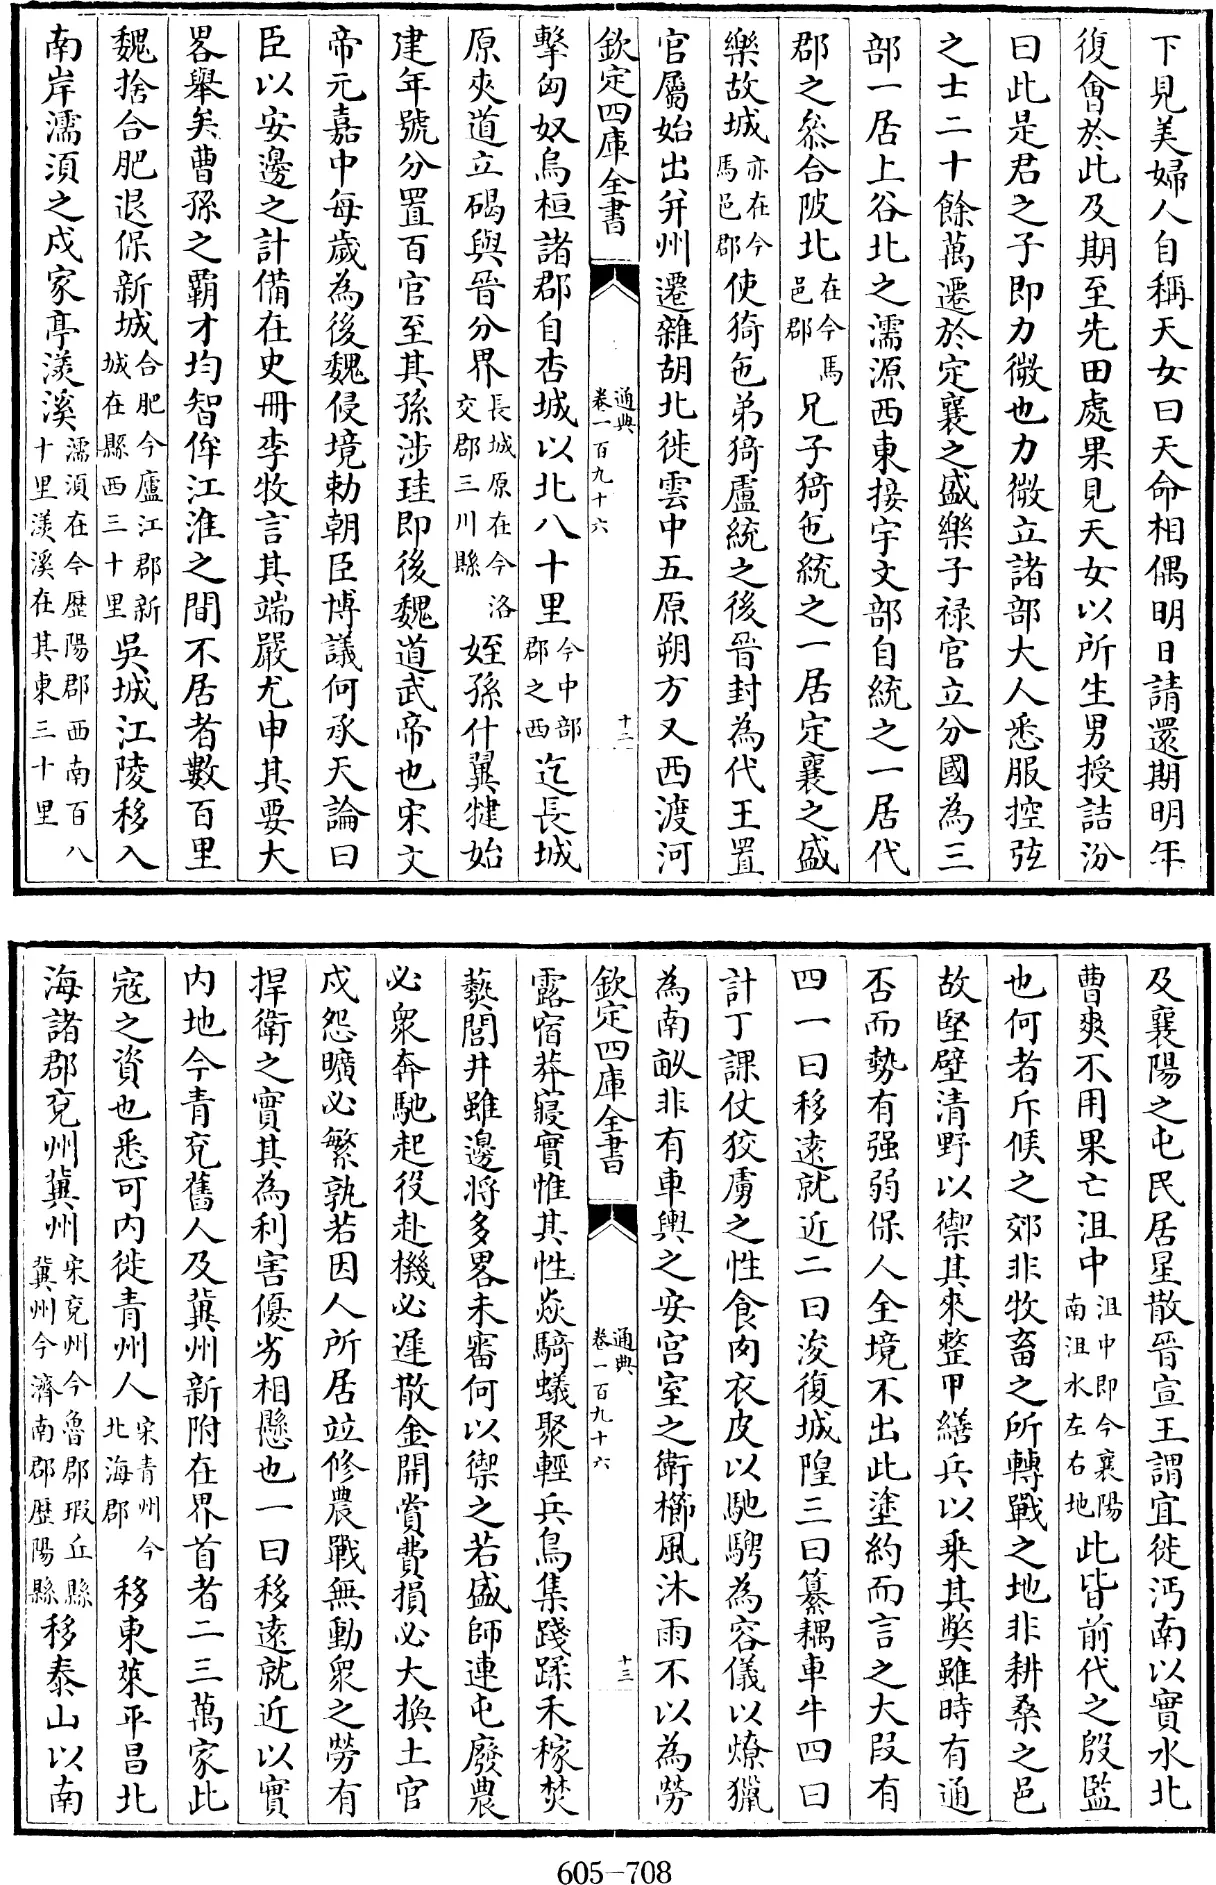 下見美婦人自稱天女曰天命相偶明日請還期明年
復會於此及期至先田處果見天女以所生男授詰汾
曰此是君之子即力微也力微立諸部大人悉服控弦
之士二十餘萬遷於定襄之盛樂子禄官立分國為三
部一居上谷北之濡源西東接宇文部自統之一居代
郡之叅合陂北在今馬邑郡兄子猗㐌統之一居定襄之盛
樂故城亦在今馬邑郡使猗㐌弟猗盧統之後晉封為代王置
官屬始出并州遷雜胡北徙雲中五原朔方又西渡河
欽定四庫全書
通典
卷一百九十六
十二
擊匈奴烏桓諸郡自杏城以北八十里今中部郡之西迄長城
原夾道立碣與晉分界長城原在今洛交郡三川縣姪孫什翼犍始
建年號分置百官至其孫涉珪即後魏道武帝也宋文
帝元嘉中每歲為後魏侵境勅朝臣博議何承天論曰
臣以安邊之計備在史冊李牧言其端嚴尤申其要大
畧舉矣曹孫之霸才均智侔江淮之間不居者數百里
魏捨合肥退保新城合肥今廬江郡新城在縣西三十里吳城江陵移入
南岸濡須之戍家亭渼溪濡須在今歴陽郡西南百八十里渼溪在其東三十里
及襄陽之屯民居星散晉宣王謂宜徙沔南以實水北
曹爽不用果亡沮中沮中即今襄陽南沮水左右地此皆前代之殷監
也何者斥候之郊非牧畜之所轉戰之地非耕桑之邑
故堅壁清野以禦其來整甲繕兵以乘其獘雖時有通
否而勢有强弱保人全境不出此塗約而言之大段有
四一曰移遠就近二曰浚復城隍三曰纂耦車牛四曰
計丁課仗狡虜之性食肉衣皮以馳騁為容儀以燎獵
為南畝非有車輿之安宫室之衛櫛風沐雨不以為勞
欽定四庫全書
通典
卷一百九十六
十三
露宿莽寢實惟其性焱騎蟻聚輕兵鳥集踐蹂禾稼焚
爇閭井雖邊將多畧未審何以禦之若盛師連屯廢農
必衆奔馳起役赴機必遲散金開賞費損必大換土官
戍怨曠必繁孰若因人所居竝修農戰無動衆之勞有
捍衛之實其為利害優劣相懸也一曰移遠就近以實
内地今青兖舊人及冀州新附在界首者二三萬家此
寇之資也悉可内徙青州人宋青州今北海郡移東萊平昌北
海諸郡兖州冀州宋兖州今魯郡瑕丘縣冀州今濟南郡歴陽縣移泰山以南
605-708